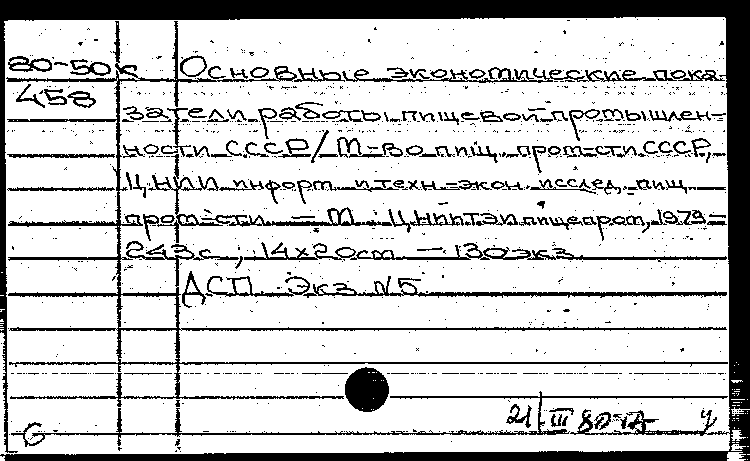 80-50к Основные экономические пока-
458 затели работы пищевой промышлен-
ности СССР/М-во пищ. пром-сти СССР,
ЦНИИ информ. и техн.-экон. исслед. пищ.
пром-сти. — М. : ЦНИИТЭИпищепром, 1979 –
243с ; 14х20см. — 130экз.
ДСП. Экз. N5
21/III 80
6